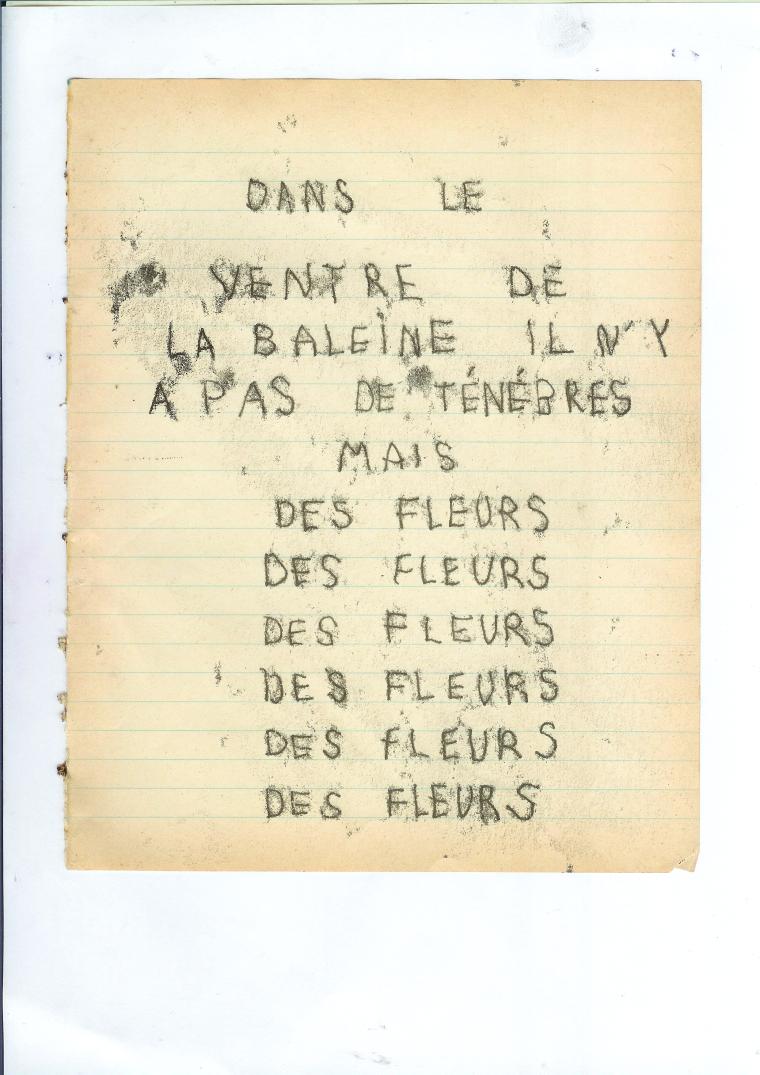 DANS LE
VENTRE DE
LA BALEINE IL N'Y
A PAS DE TÉNÉBRES
MAIS
DES FLEURS
DES FLEURS
DES FLEURS
DES FLEURS
DES FLEURS
DES FLEURS